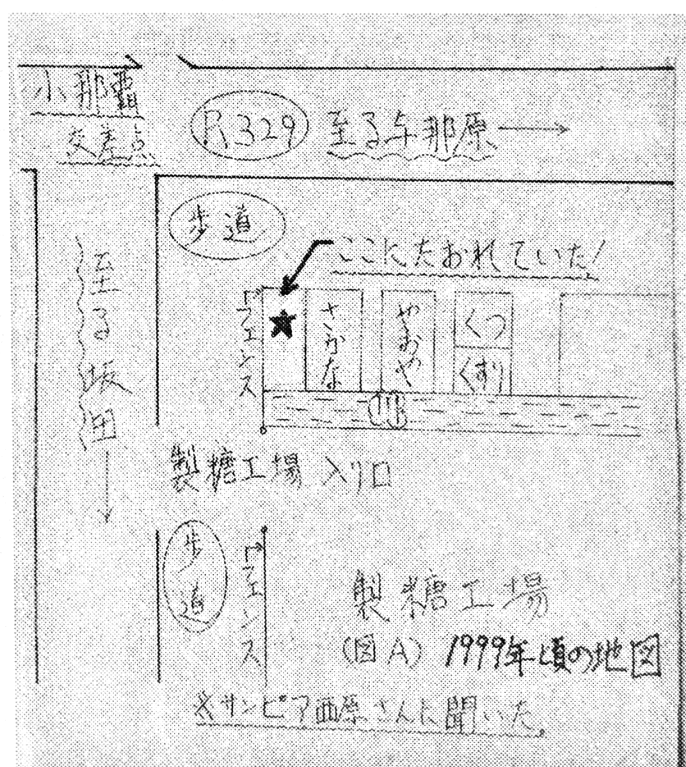 小那覇
交差点
R329
至る与那原
歩道
ここにたおれていた!
フェンス
さかな
やおや
くつ
くすり
川
至る坂田
製糖工場 入り口
歩道
フェンス
製糖工場
(図A) 1999年頃の地図
※サンピア西原さんに聞いた。